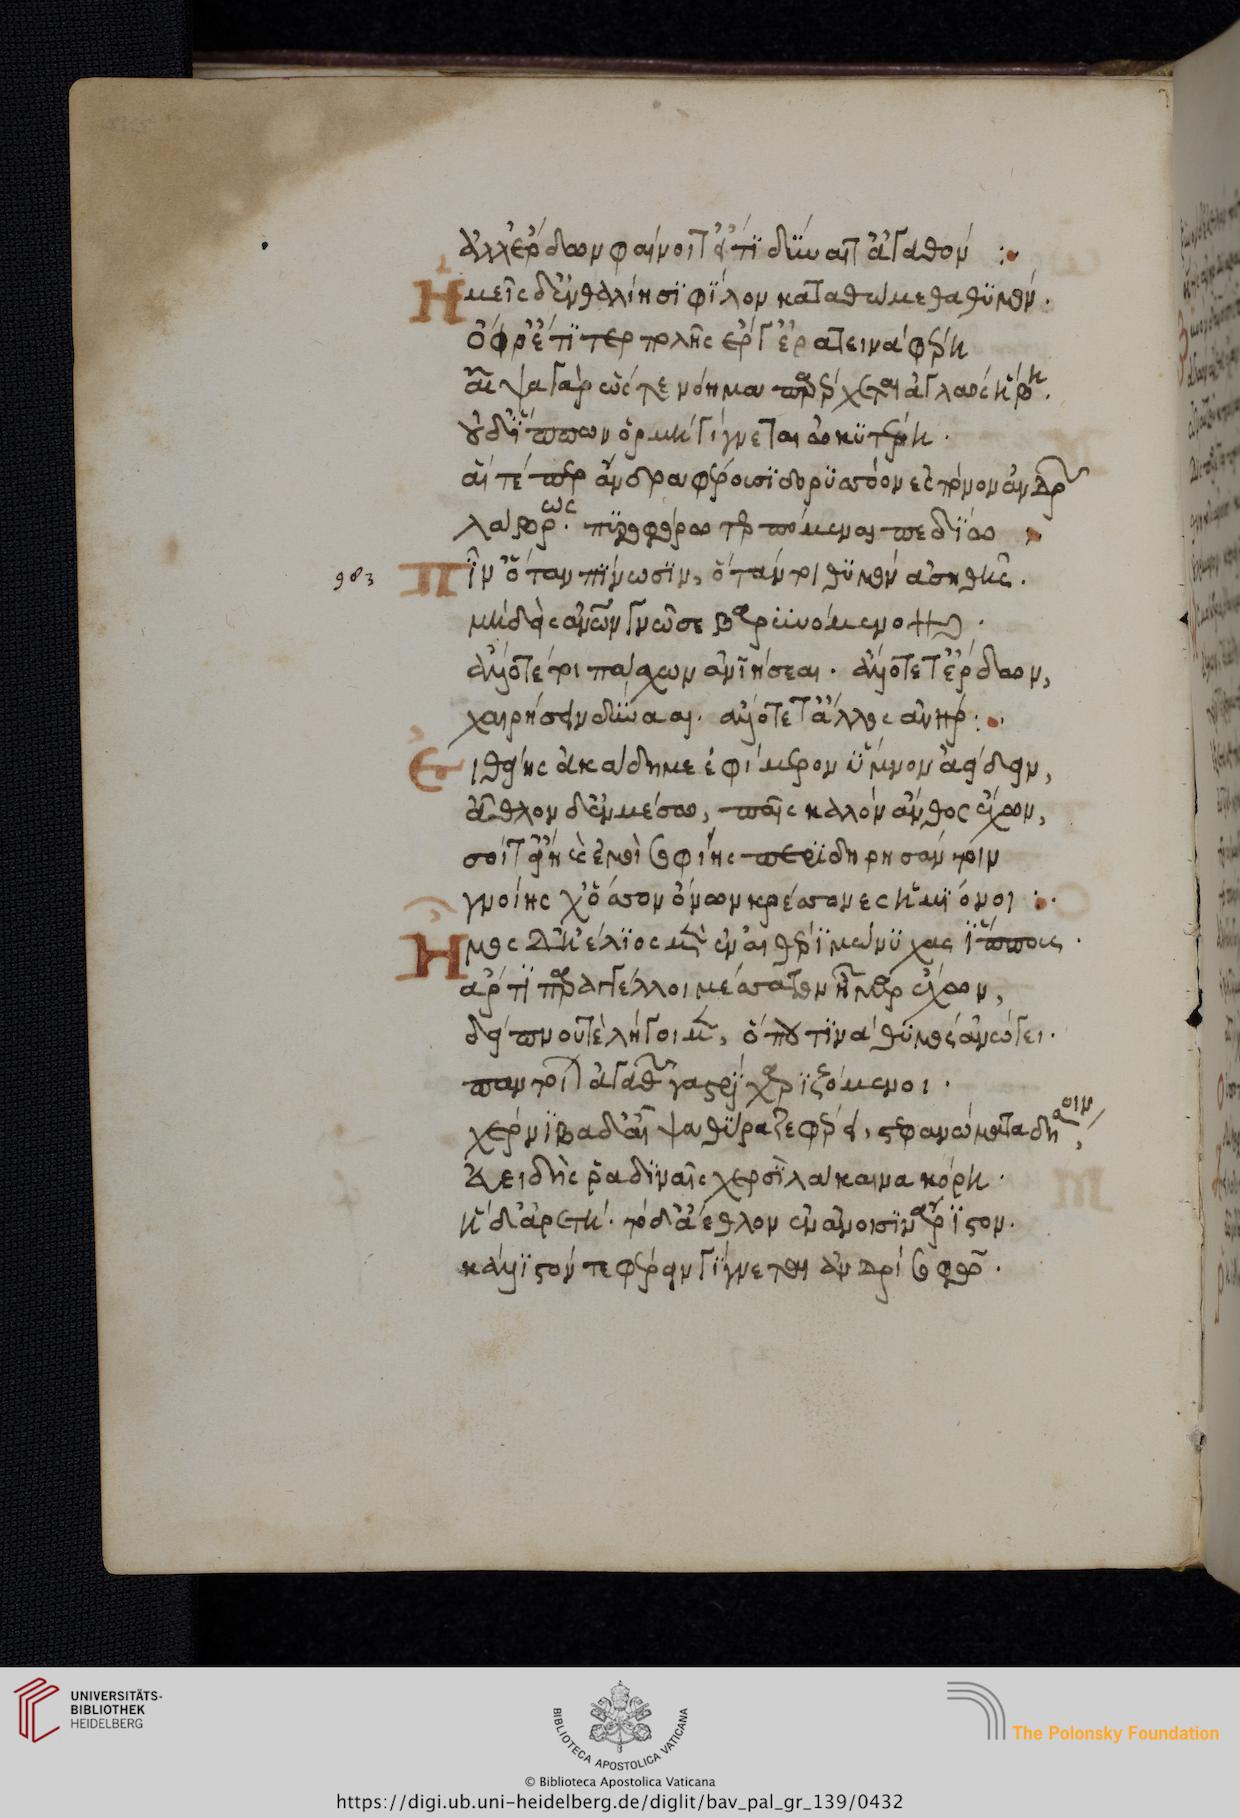 ἀλλ' ἔρδων φαίνοιτ' εἴ τι δύναιτ' ἀγαθόν :
Ἡμεῖς δ' ἐν θαλίησι φίλον καταθώμεθα θυμόν.
ὄφρ' ἔτι τερπωλῆς ἔργ' ἐρατεινὰ φέρῃ
αἶψα γὰρ ὥστε νόημα παρέρχεται ἀγλαὸς ἥβη.
οὐδ' ἵππων ὁρμὴ γίγνεται ὠκυτέρη.
αἵ τέ περ ἄνδρα φέρουσι δορυσσόον ἐς πόνον ἀνδρ
λάβρως. πυροφόρω τερπόμεναι πεδίω
983 Πῖν' ὁπόταν πίνωσιν, ὅταν τι θυμὸν ἀσηθῇς.
μηδεὶς ἀνθρώπων γνῷ σε βαρυνόμενον.
ἄλλοτέ τοι πάσχων ἀνιήσεαι. ἄλλοτε δ' ἔρδων,
χαιρήσειν δύνασαι. ἄλλοτε τ' ἄλλος ἀνήρ :
Εἴθ' εἴης ἀκάδημε ἐφίμερον ὕμνον ἀείδειν,
ἆθλον δ' ἐν μέσω, παῖς καλὸν ἄνθος ἔχων,
σοί τ' εἴη καὶ ἐμοὶ σοφίης πέρι δηρησάντοιν
γνοίης χ' ὅσσον ὄνων κρέσσονες ἡμίονοι :
Ἦμος δ' ἠέλιος μὲν ἐν αἰθέρι μώνυχας ἵππους.
ἄρτι παραγγέλλοι μέσσατον ἦμαρ ἔχων,
δείπνου τε λήγοιμεν, ὅπου τινὰ θυμὸς ἀνώγει.
παντοίων ἀγαθῶν γαστρὶ χαριζόμενοι.
χέρνιβα δ' αἶψα θύραζε φέρει, στεφανώματα δ' εἴσω,
εὐειδὴς ῥαδιναῖς χερσὶ λάκαινα κόρη.
ἥδ' ἀρετή. τόδ' ἄεθλον ἐν ἀνθρώποισιν ἄριστον.
κάλλιστόν τε φέρειν γίγνεται ἀνδρὶ σοφῶ.
UNIVERSITÄTS-
BIBLIOTHEK
HEIDELBERG
BIBLIOTECA APOSTOLICA VATICANA
The Polonsky Foundation
© Biblioteca Apostolica Vaticana
https://digi.ub.uni-heidelberg.de/diglit/bav_pal_gr_139/0432